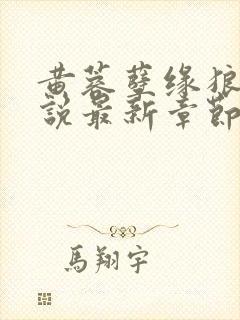 黄蓉孽缘狼
說最新章節
馬翔宇